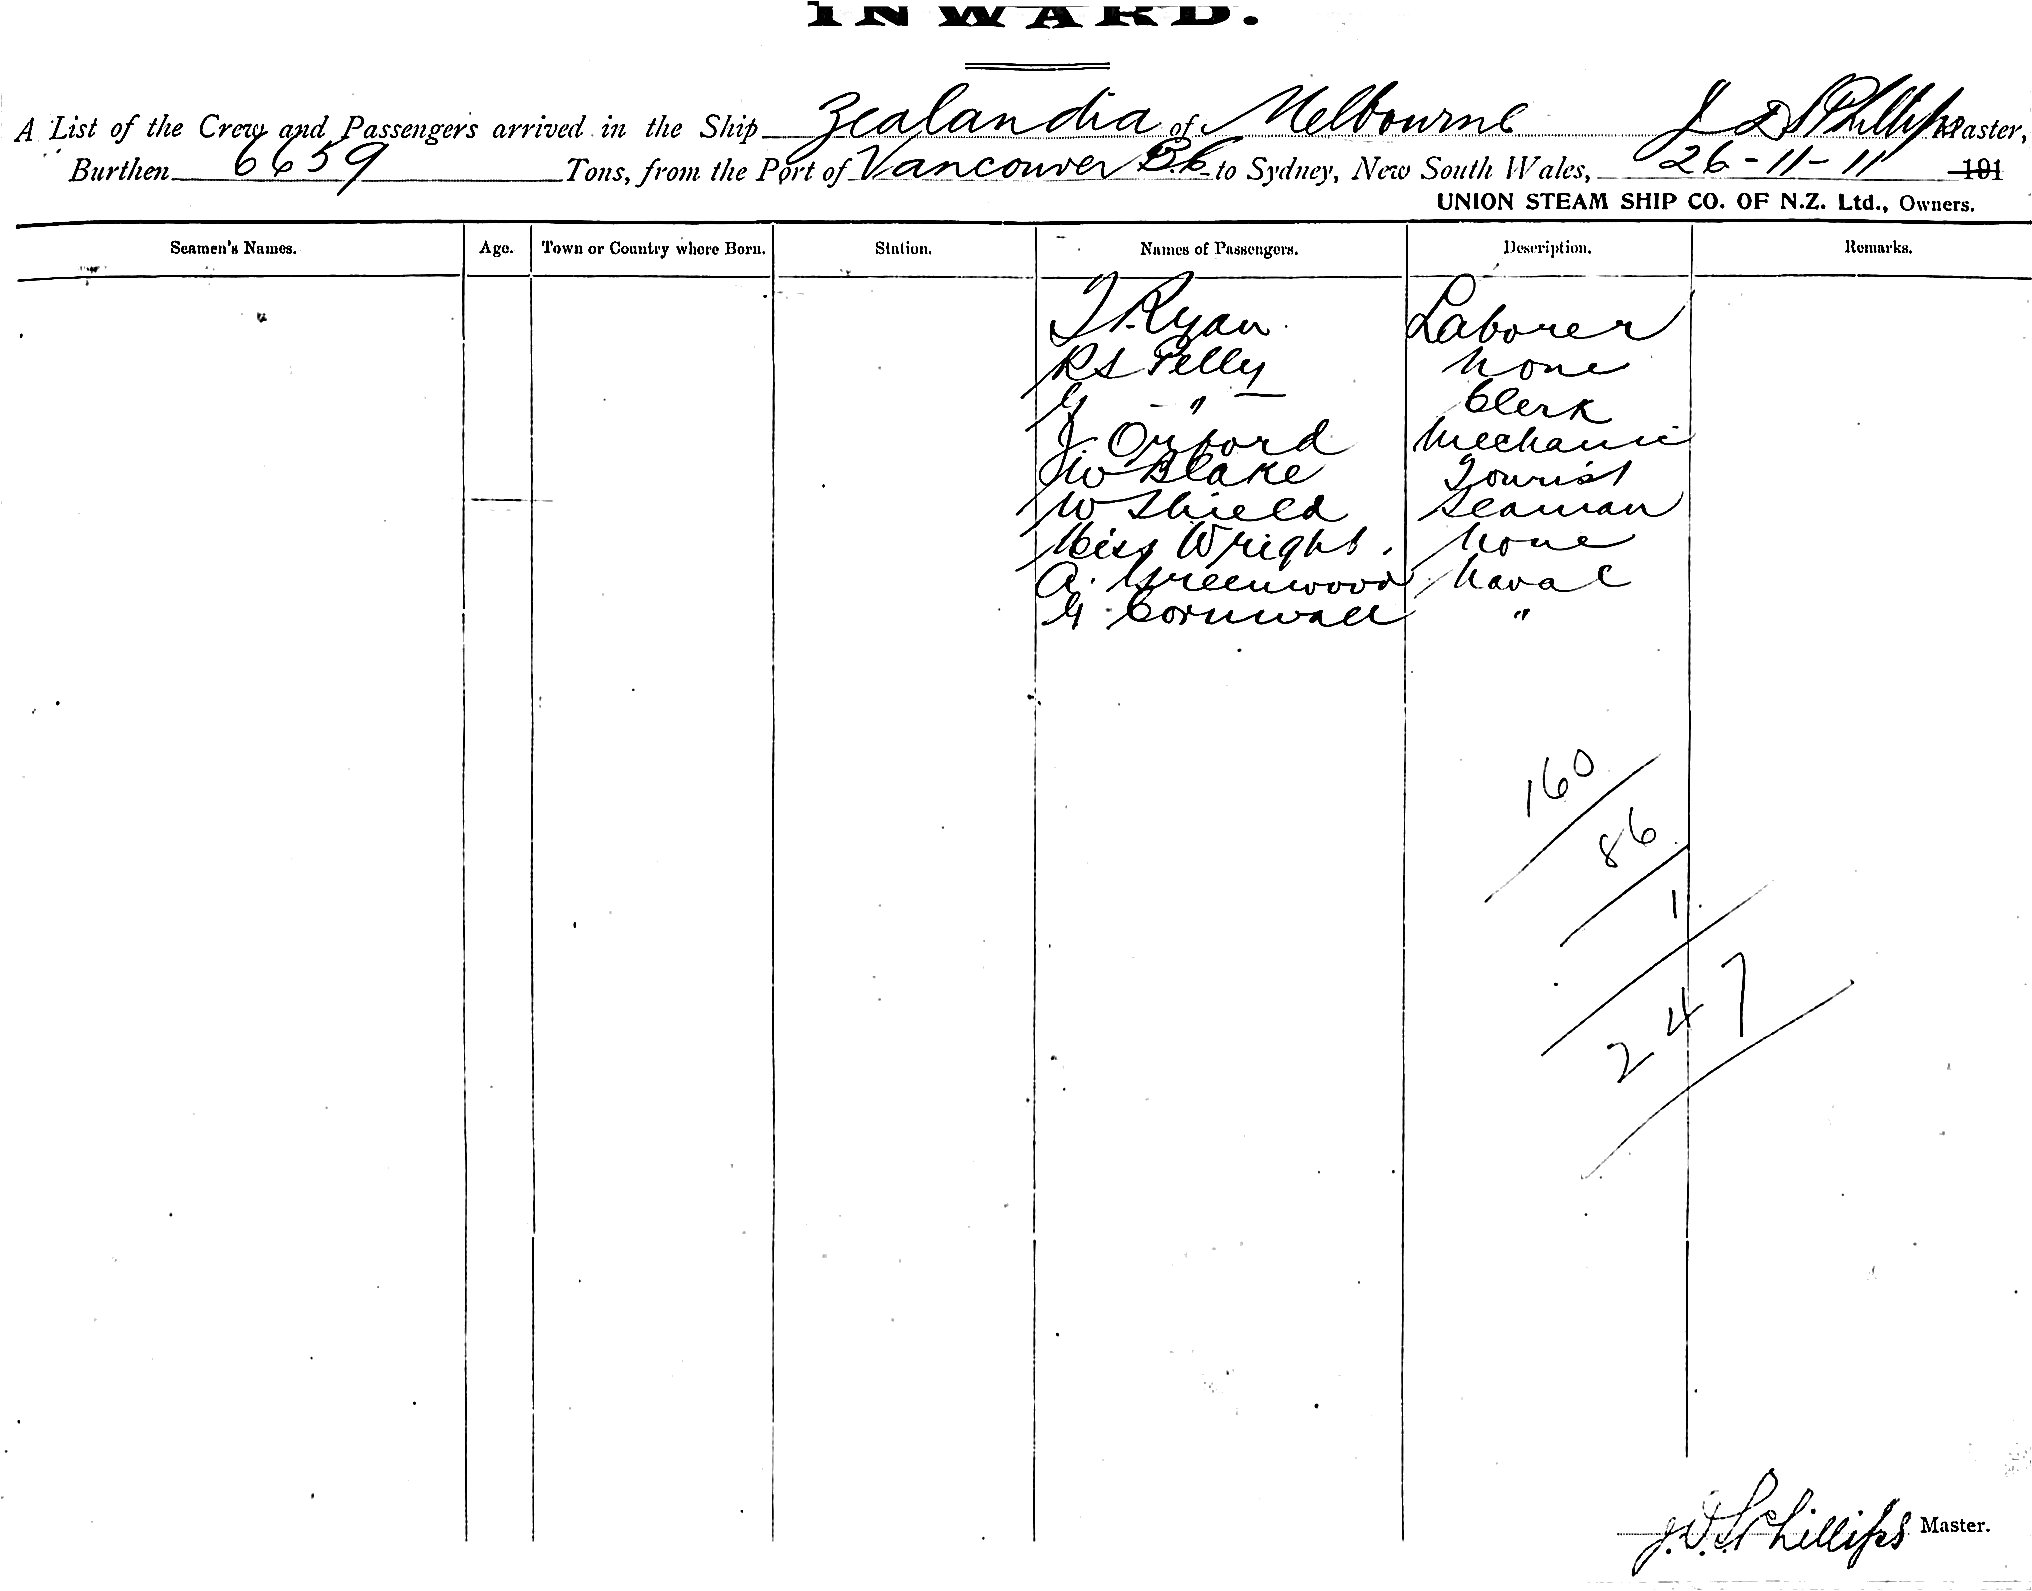 INWARD.
A List of the Crew and Passengers arrived in the Ship Zealandia of Melbourne J D S Phillips Master,
Burthen 6659 Tons, from the Port of Vancouver B.C. to Sydney, New South Wales, 26-11-11 191
UNION STEAM SHIP CO. OF N.Z. Ltd., Owners.
Seamen's Names. Age. Town or Country where Born. Station. Names of Passengers. Description. Remarks.
T. Ryan Laborer
R S Pelly None
G " Clerk
J Orford Mechanic
W Blake Tourist
W Shield Seaman
Miss Wright. None
A. Greenwood Naval
G Cornwall "
160
86
1
247
J. D. S. Phillips Master.